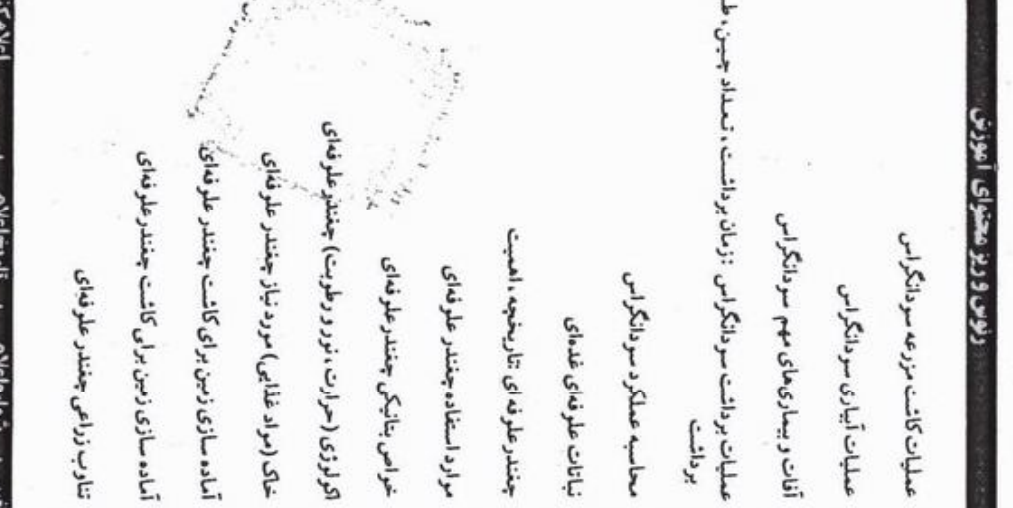 رئوس و ریز محتوای آموزش
عملیات کاشت مزرعه سودانگراس
عملیات آبیاری سودانگراس
آفات و بیماری‌های مهم سودانگراس
عملیات برداشت سودانگراس :زمان برداشت ، تعداد چین ،
برداشت
محاسبه عملکرد سودانگراس
نباتات علوفه‌ای غده‌ای
چغندر علوفه ای :تاریخچه ، اهمیت
موارد استفاده چغندر علوفه‌ای
خواص بتانیکی چغندر علوفه‌ای
اکولوژی (حرارت ، نور و رطوبت) چغندر علوفه‌ای
خاک (مواد غذایی) مورد نیاز چغندر علوفه‌ای
آماده سازی زمین برای کاشت چغندر علوفه‌ای
آماده سازی زمین برای کاشت چغندر علوفه‌ای
تناوب زراعی چغندر علوفه‌ای